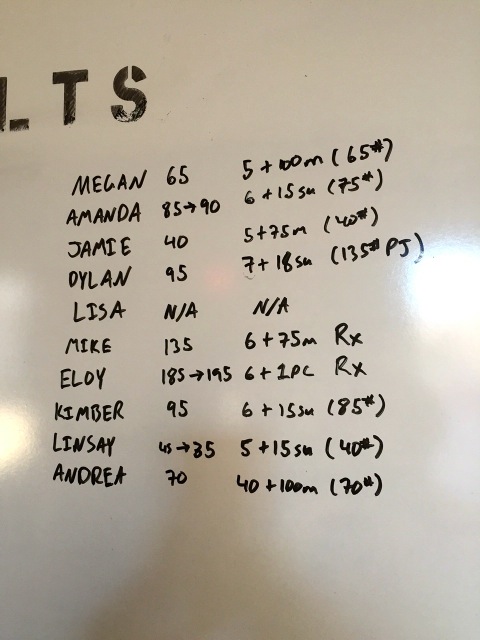 LTS
MEGAN 65 5 + 100m (65#)
AMANDA 85→90 6 + 15su (75#)
JAMIE 40 5+75m (40#)
DYLAN 95 7 + 18su (135# PJ)
LISA N/A N/A
MIKE 135 6 + 75m Rx
ELOY 185→195 6 + 1PC Rx
KIMBER 95 6 + 15su (85#)
LINSAY 45→35 5 + 15su (40#)
ANDREA 70 40 + 100m (70#)